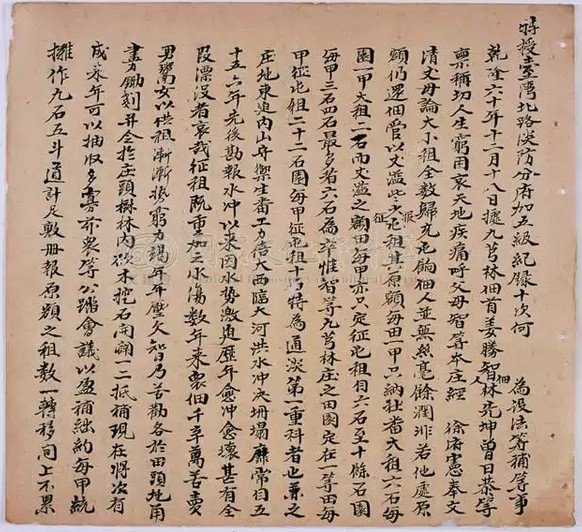 特授臺灣北路淡防分府加五級紀錄十次何　為設法籌補等事
乾隆六十年十二月十八日據九芎林佃首姜勝智佃人林乾坤曾日恭等
稟稱切人生窮困哀天地疾痛呼父母智等本庄經　徐府憲奉文
清丈毋論大小租全數歸充屯餉佃人並無絲毫餘潤非若他處原
額仍還佃管以丈溢些少征屯租其原額每田一甲只納社番大租六石每
園一甲大租二石而丈溢之額田每甲亦只定征屯租自六石至十餘石園
每甲三石四石最多者六石為率惟智等九芎林庄之田園定在一等田每
甲征屯租二十二石園每甲征屯租十石特為通淡第一重科者也兼之
庄地東迫內山守禦生番工力倍大西臨大河洪水冲決坍塌靡常自五
十五六年先後勘報水冲以來因水勢激迫歷年愈冲愈壞甚有全
段漂沒者哀哉征租既重加之水傷數年來眾佃千辛萬苦賣
男鬻女以供租漸漸勢窮力竭年年歷欠智乃苦勸各於田頭地角
盡力鋤刻并令於庄頭樹林內砍木挖石開闢一二抵補現在將次有
成來年可以抽收多寡亦眾等公踏會議以盈補絀約每甲統
攤作九石五斗通計足敷冊報原額之租數一轉移間上不累